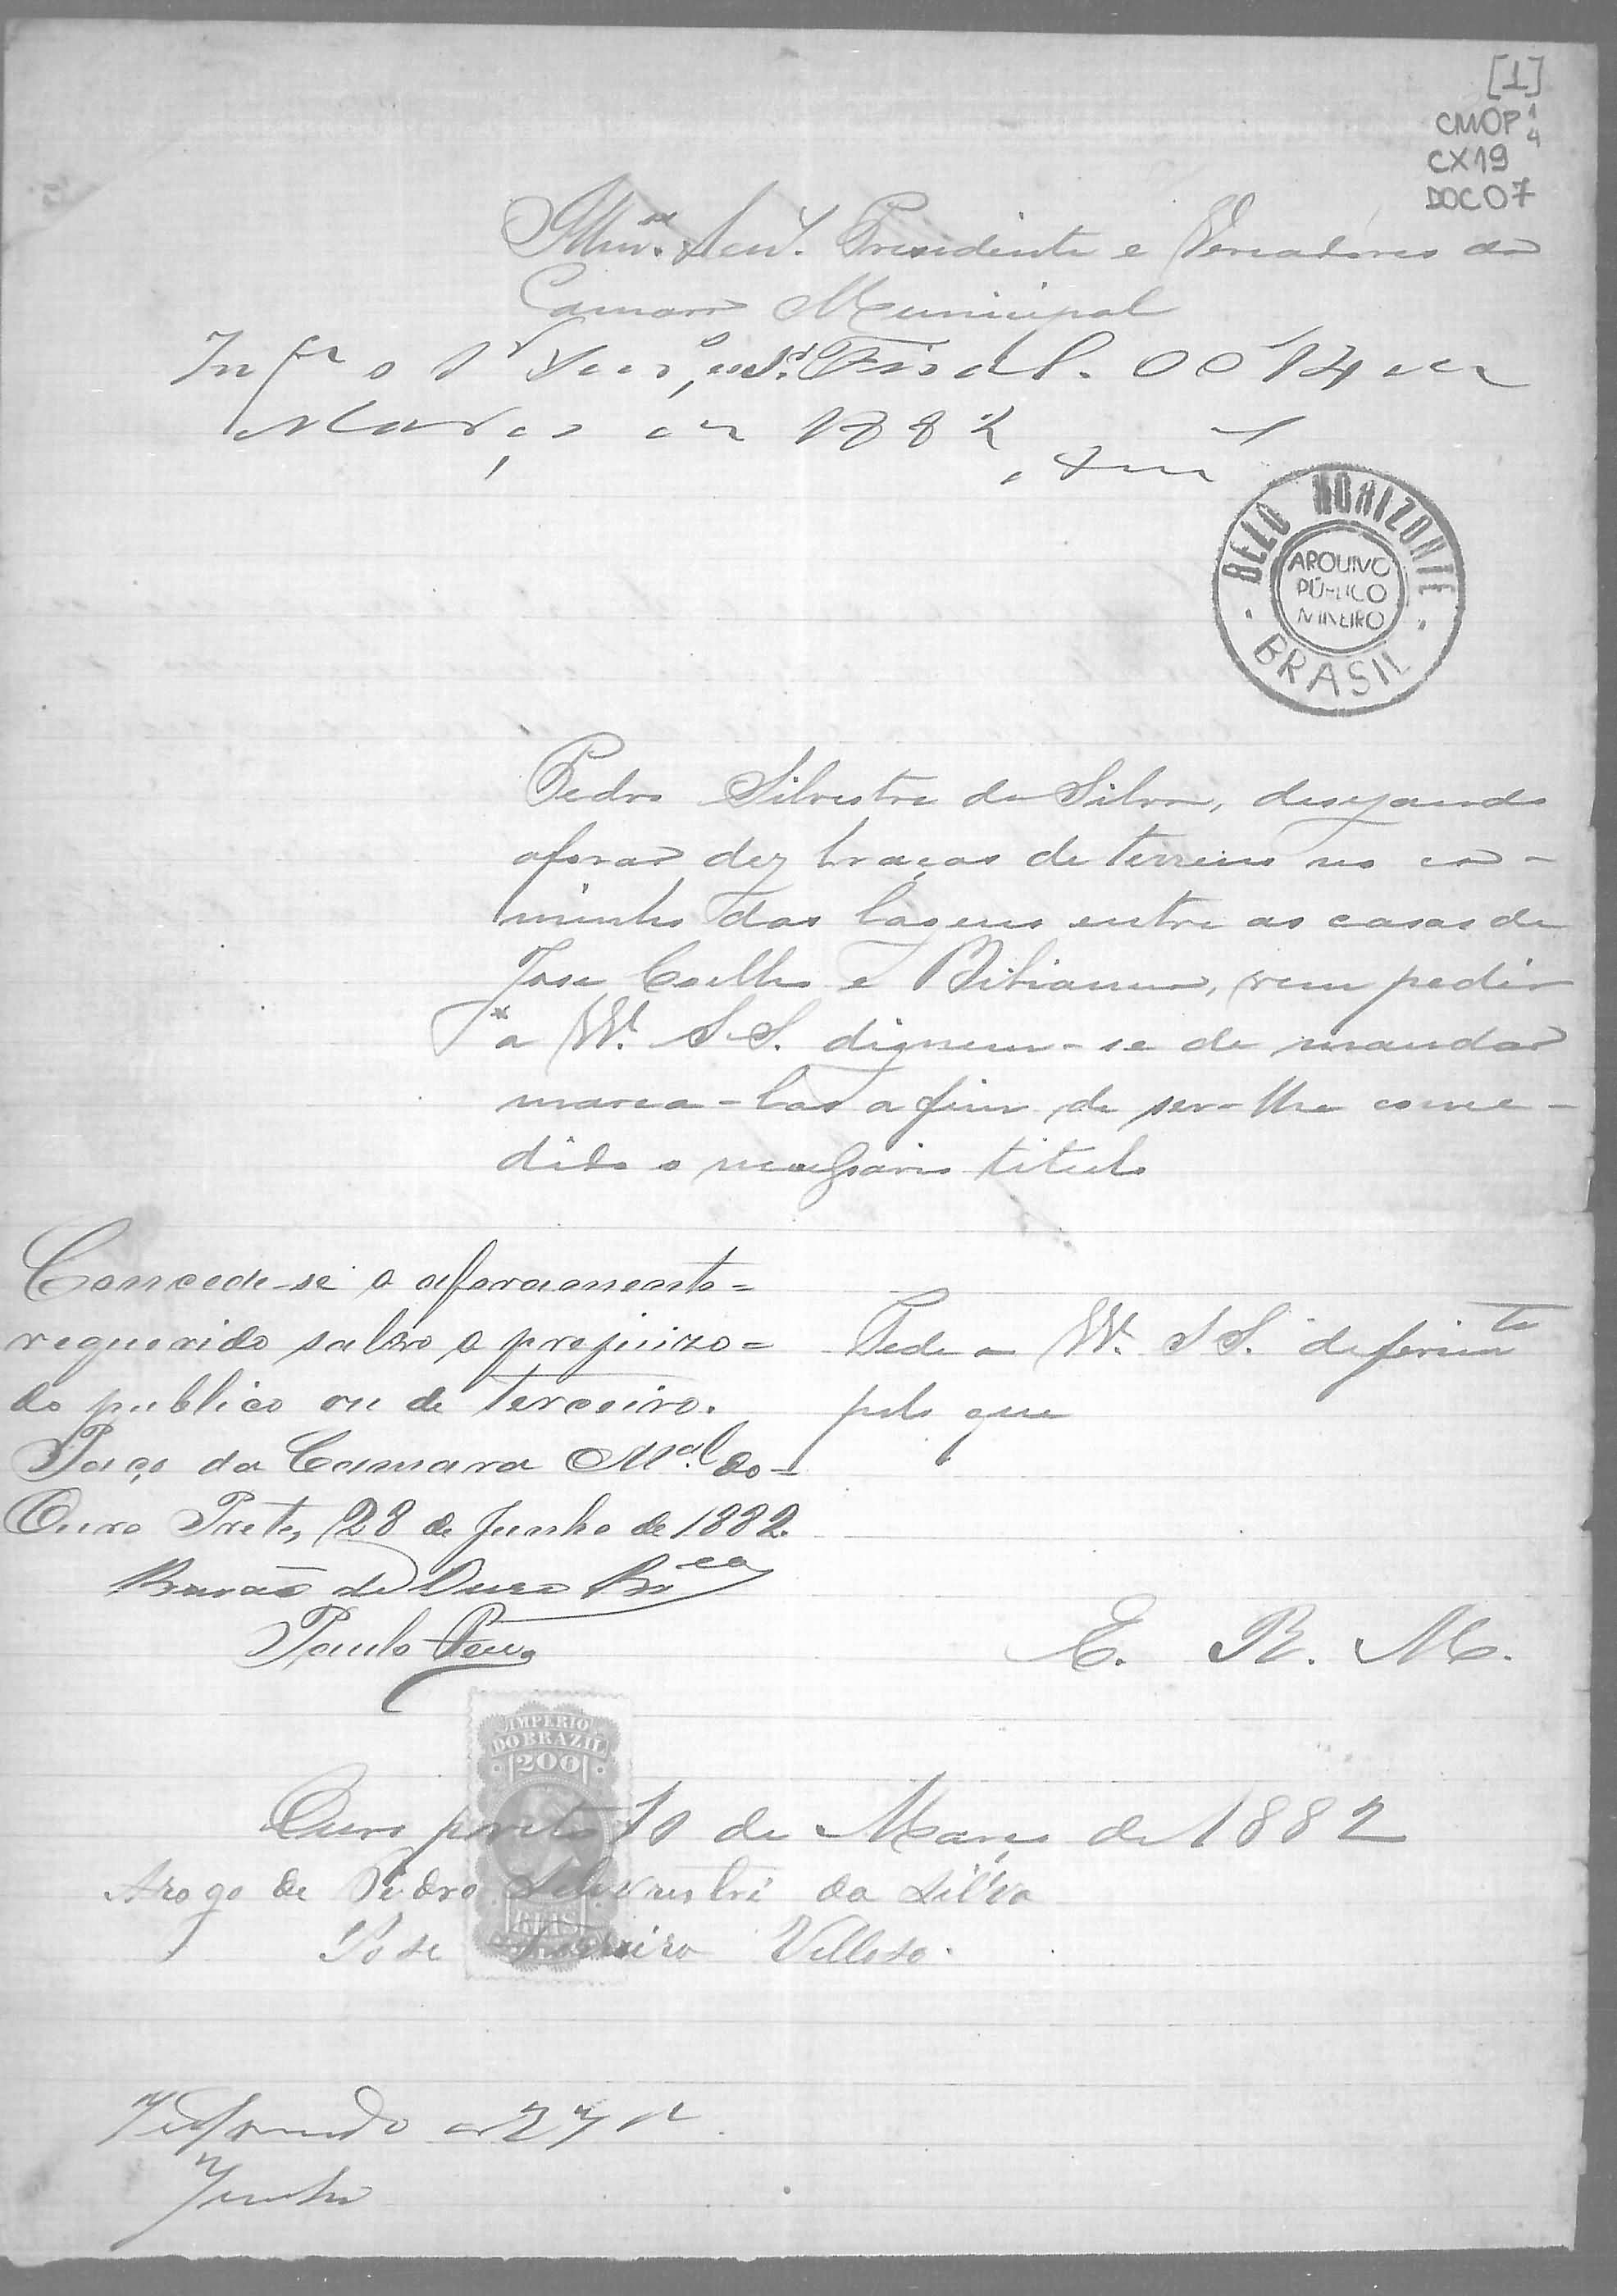 [1]
CMOP 1/4
CX19
DOC07
Illm.os Snr.s Presidente e Vereadores da
Camara Municipal
Inf.e o Fiscal. OP 14 de
Março de 1882
BELO HORIZONTE
ARQUIVO
PÚBLICO
MINEIRO
BRASIL
Pedro Silvestre da Silva, desejando
aforar dez braças de terreno no ca-
minho das lagens entre as casas de
Jose Coelho e Bibianna, vem pedir
a VV. S S. dignem-se de mandar
marca-las a fim de ser-lhe conce-
dido o necessario titulo
Concede-se o aforamento=
requerido salvo o prejuizo=
do publico ou de terceiro.
Paço da Camara M.al do=
Ouro Preto, 28 de Junho de 1882.
Barão de Ouro Br.co
Paulo
Pede a VV. S S. deferim.to
pelo que
E. R. M.
IMPERIO
DO BRAZIL
200
REIS
Ouro preto 10 de Março de 1882
Arogo de Pedro Silvestre da Silva
Jose Ferreira Velloso.
Informado a 27 de
Junho